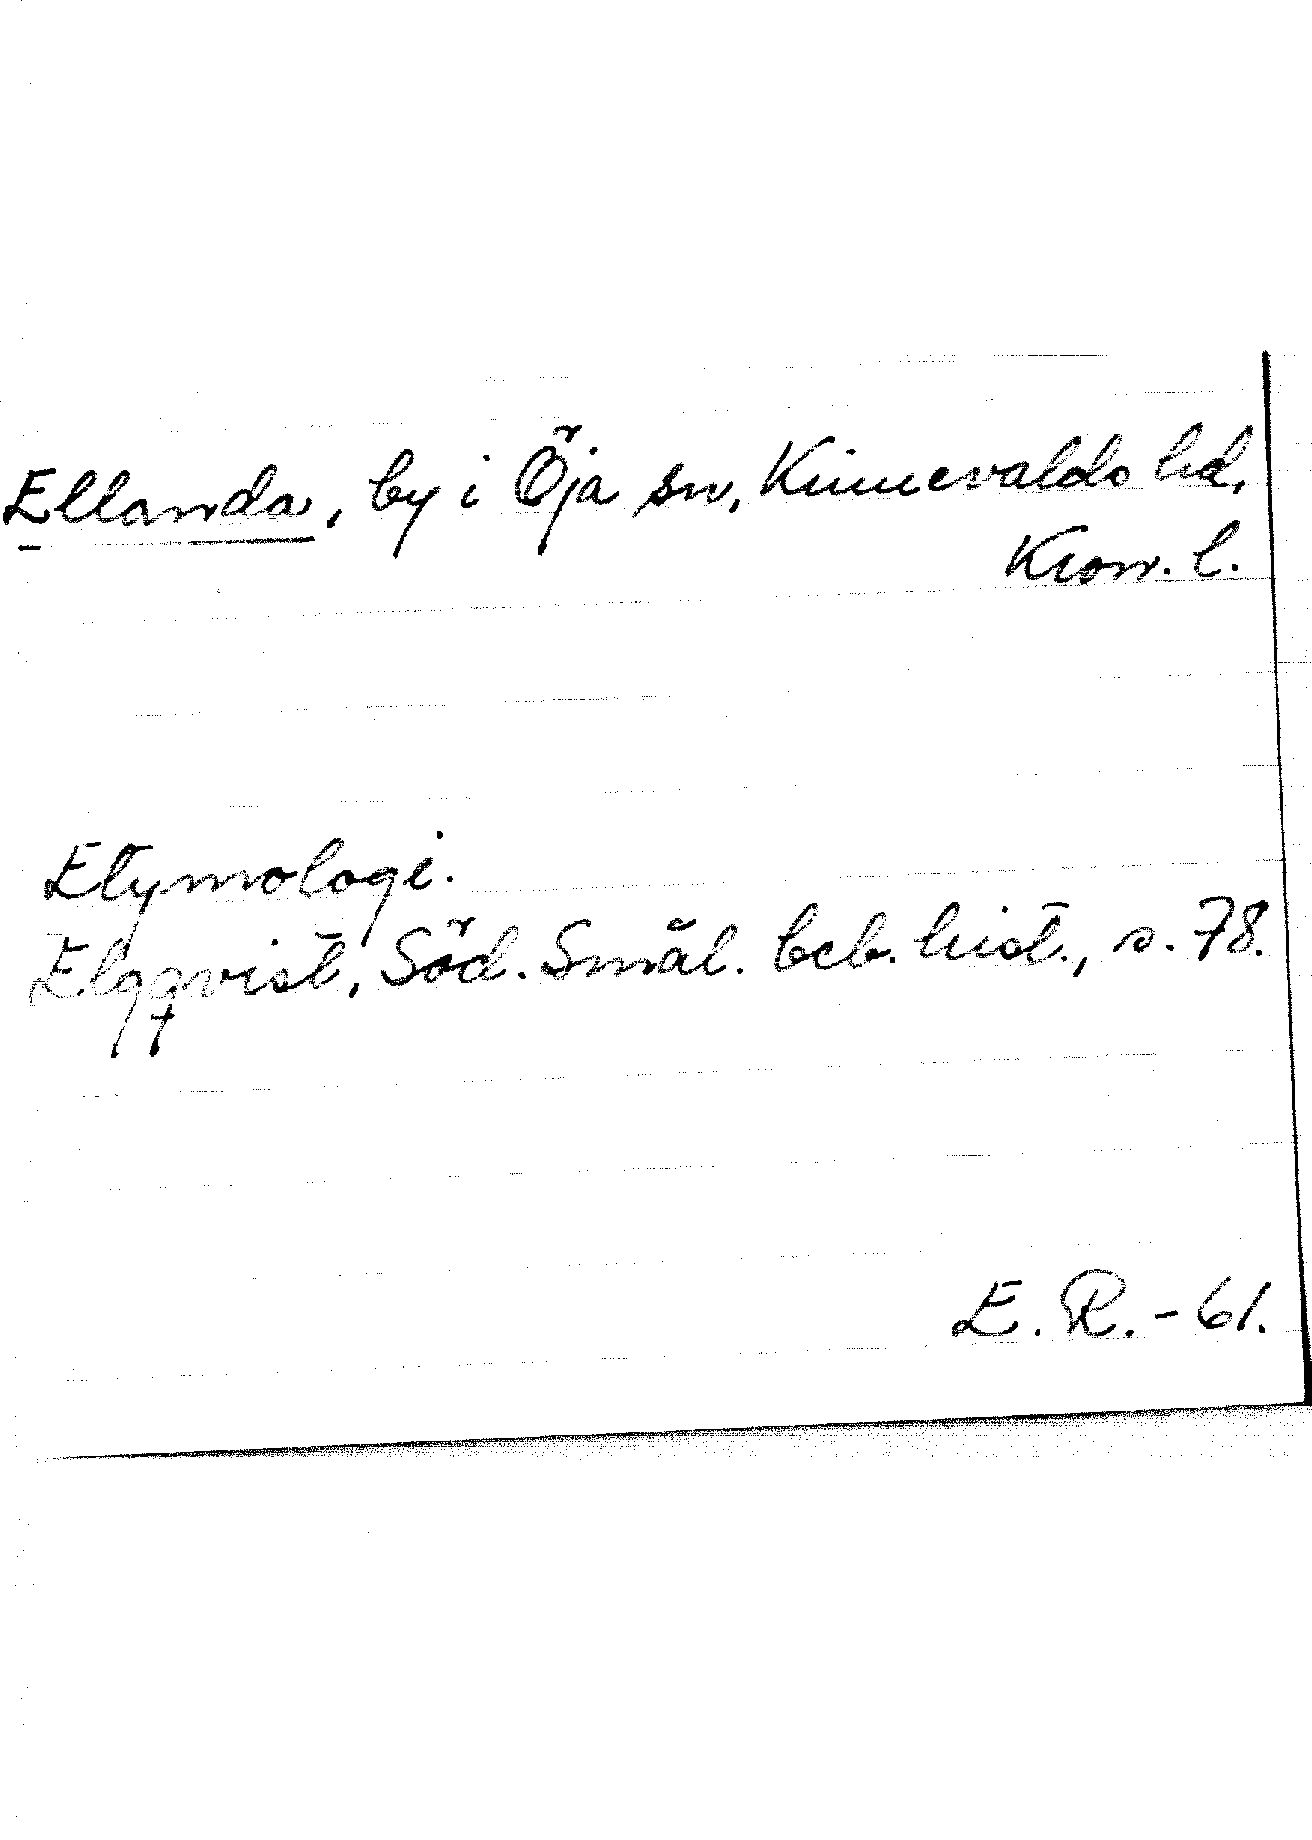 Ellanda, by i Öja sn, Kinnevalds hd,
Kron. l.
Etymologi.
Elgqvist, Söd. Smål. beb. hist., s. 78.
E. R. - 61.